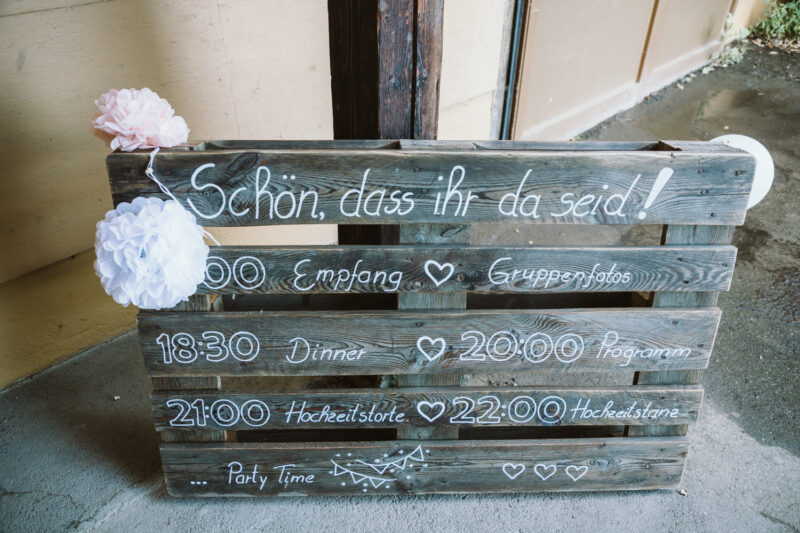 Schön, dass ihr da seid!
00 Empfang ♡ Gruppenfotos
18:30 Dinner ♡ 20:00 Programm
21:00 Hochzeitstorte ♡ 22:00 Hochzeitstanz
... Party Time ♡ ♡ ♡